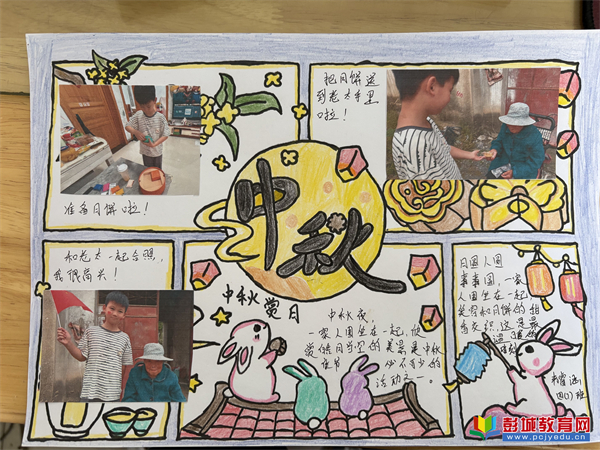 把月饼送
到老太手里
啦！
准备月饼啦！
中秋
和老太一起合照，
我很高兴！
中秋赏月
中秋夜，
一家人围坐在一起，欣
赏悬挂当空的美景是中秋
佳节必不可少的
活动之一。
月圆人圆
事事圆，一家
人围坐在一起
笑容和月饼的相
香交织，这是最
温
四(1)班
彭城教育网
www.pcjyedu.cn